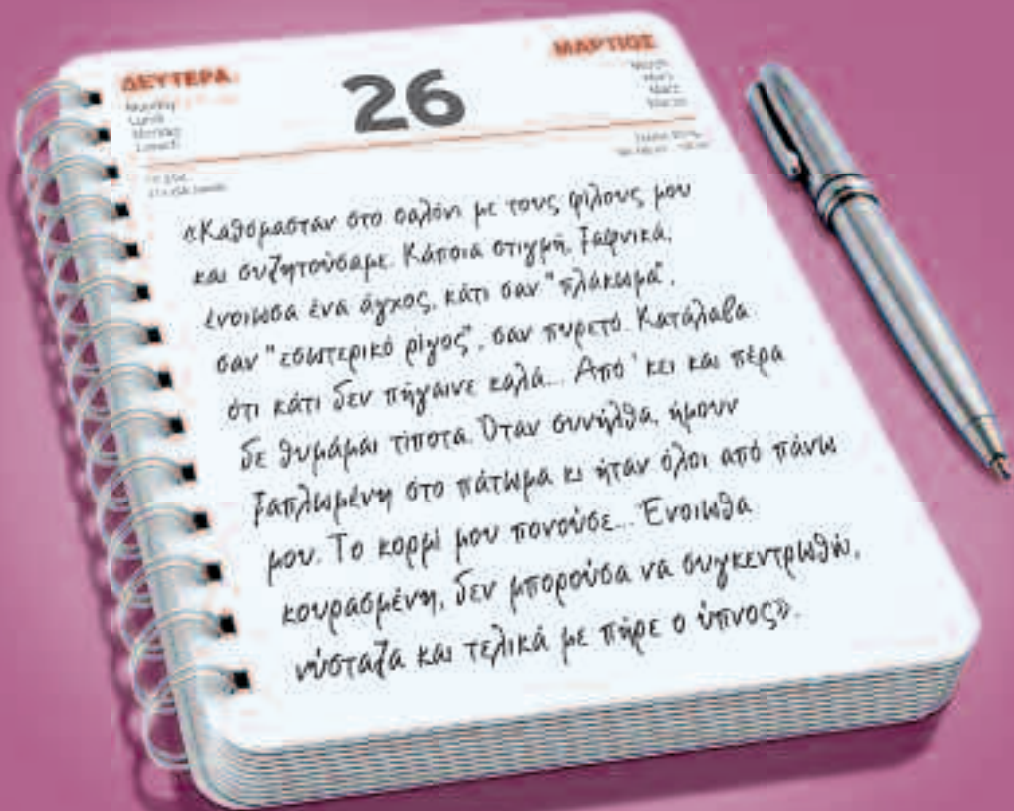 ΔΕΥΤΕΡΑ
Monday
Lundi
Montag
Lunedi
26
ΜΑΡΤΙΟΣ
March
Mars
März
Marzo
«Καθόμασταν στο σαλόνι με τους φίλους μου
και συζητούσαμε. Κάποια στιγμή, ξαφνικά,
ένοιωσα ένα άγχος, κάτι σαν "πλάκωμα",
σαν "εσωτερικό ρίγος", σαν πυρετό. Κατάλαβα
ότι κάτι δεν πήγαινε καλά... Από 'κει και πέρα
δε θυμάμαι τίποτα. Όταν συνήλθα, ήμουν
ξαπλωμένη στο πάτωμα κι ήταν όλοι από πάνω
μου. Το κορμί μου πονούσε... Ένοιωθα
κουρασμένη, δεν μπορούσα να συγκεντρωθώ,
νύσταζα και τελικά με πήρε ο ύπνος».